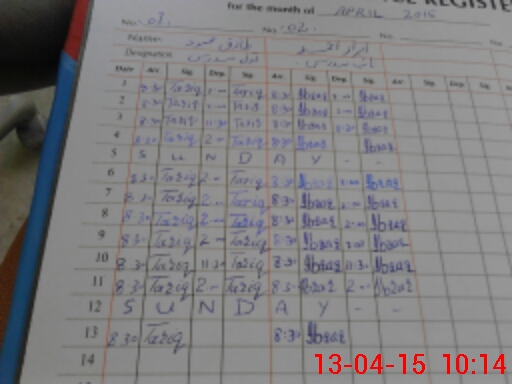 REGISTER
for the month of APRIL 2015
No. 01. No. 02. No. No
Name: طارق محمود ابرار احمد
Designation
Date Arr Sig Dep Sig Arr Sig Dep Sig Arr Sig Dep Sig Arr
1 8:30 Tariq 2-00 Tariq 8:30 Ibrar 2-00 Ibrar
2 8:30 Tariq 2-00 Tariq 8:30 Ibrar 2-00 Ibrar
3 8:30 Tariq 11:30 Tariq 8:30 Ibrar 11:30 Ibrar
4 8:30 Tariq 2-00 Tariq 8:30 Ibrar Ibrar
5 S U N D A Y - -
6 8:30 Tariq 2-00 Tariq 8:30 Ibrar 2-00 Ibrar
7 8:30 Tariq 2-00 Tariq 8:30 Ibrar 2-00 Ibrar
8 8:30 Tariq 2-00 Tariq 8:30 Ibrar 2-00 Ibrar
9 8:30 Tariq 2-00 Tariq 8:30 Ibrar 2-00 Ibrar
10 8:30 Tariq 11:30 Tariq 8:30 Ibrar 11:30 Ibrar
11 8:30 Tariq 2-00 Tariq 8:30 Ibrar 2-00 Ibrar
12 S U N D A Y - -
13 8:30 Tariq 8:30 Ibrar
14
13-04-15 10:14